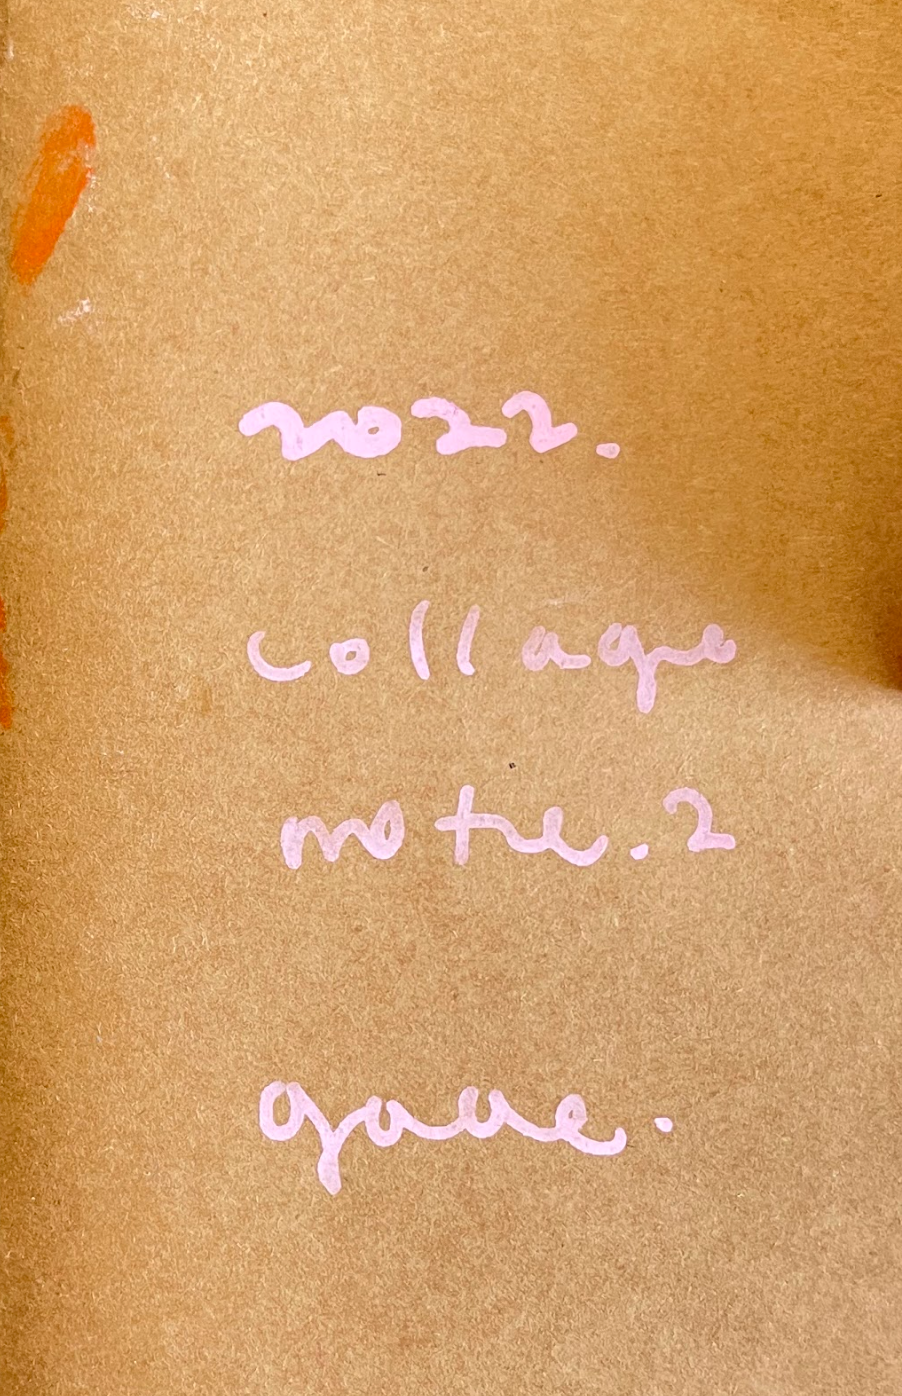 2022.
collage
note.2